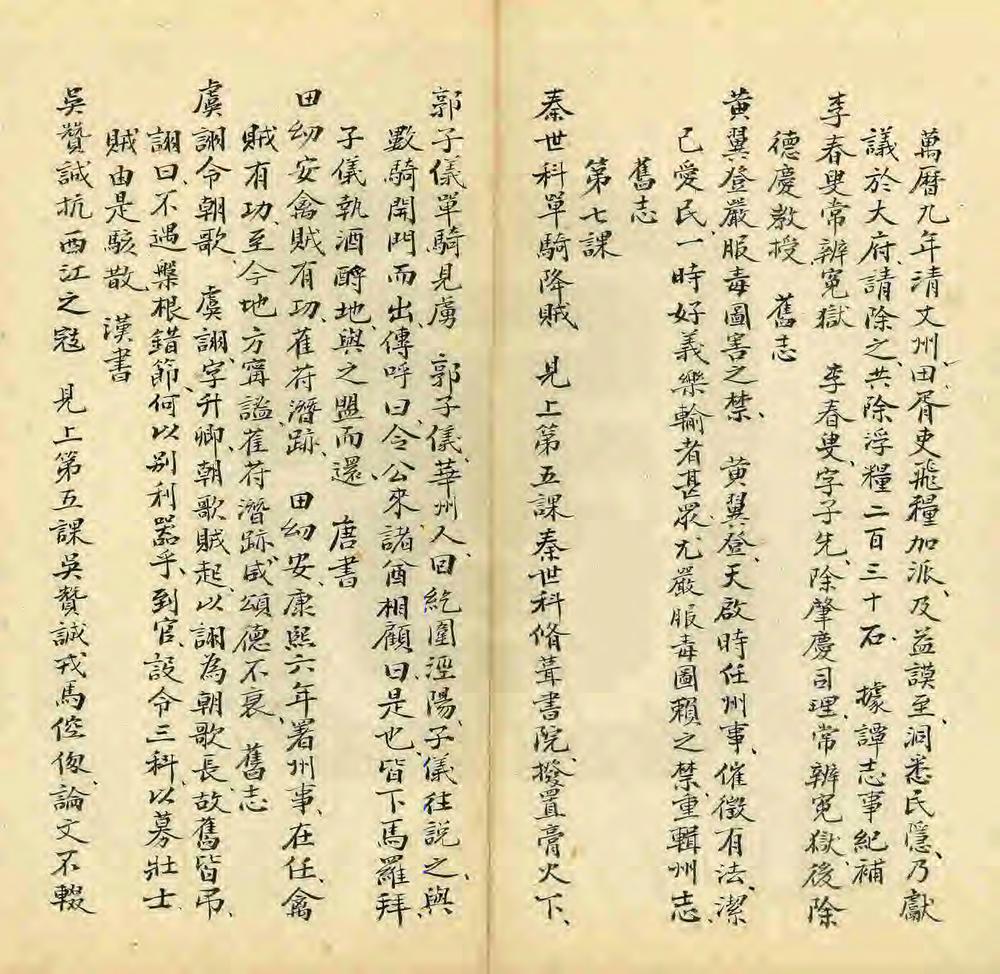 萬曆九年清丈州田胥吏飛糧加派及益謨至洞悉民隱乃獻
議於大府請除之共除浮糧二百三十石　據譚志事紀補
李春叟常辨冤獄　李春叟字子先除肇慶司理常辨冤獄後除
德慶教授　舊志
黃翼登嚴服毒圖害之禁　黃翼登天啟時任州事催徵有法潔
己愛民一時好義樂輸者甚眾尤嚴服毒圖賴之禁重輯州志
舊志
第七課
秦世科單騎降賊　見上第五課秦世科脩葺書院撥置膏火下
郭子儀單騎見虜　郭子儀華州人回紇圍涇陽子儀往說之與
數騎開門而出傳呼曰令公來諸酋相顧曰是也皆下馬羅拜
子儀執酒酹地與之盟而還　唐書
田幼安禽賊有功萑苻潛跡　田幼安康熙六年署州事在任禽
賊有功至今地方甯謐萑苻潛跡咸頌德不衰　舊志
虞詡令朝歌　虞詡字升卿朝歌賊起以詡為朝歌長故舊皆弔
詡曰不遇槃根錯節何以別利器乎到官設令三科以募壯士
賊由是駭散　漢書
吳贊誠抗西江之寇　見上第五課吳贊誠戎馬倥傯論文不輟